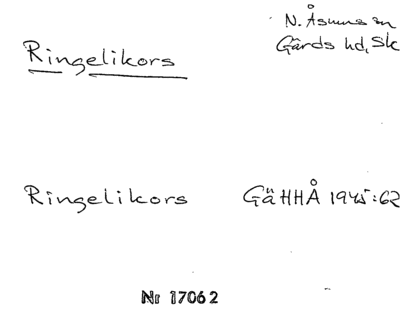 Ringelikors
N. Åsum s n
Gärds hd, Sk
Ringelikors GäHHÅ 1945:62
Nr 17062